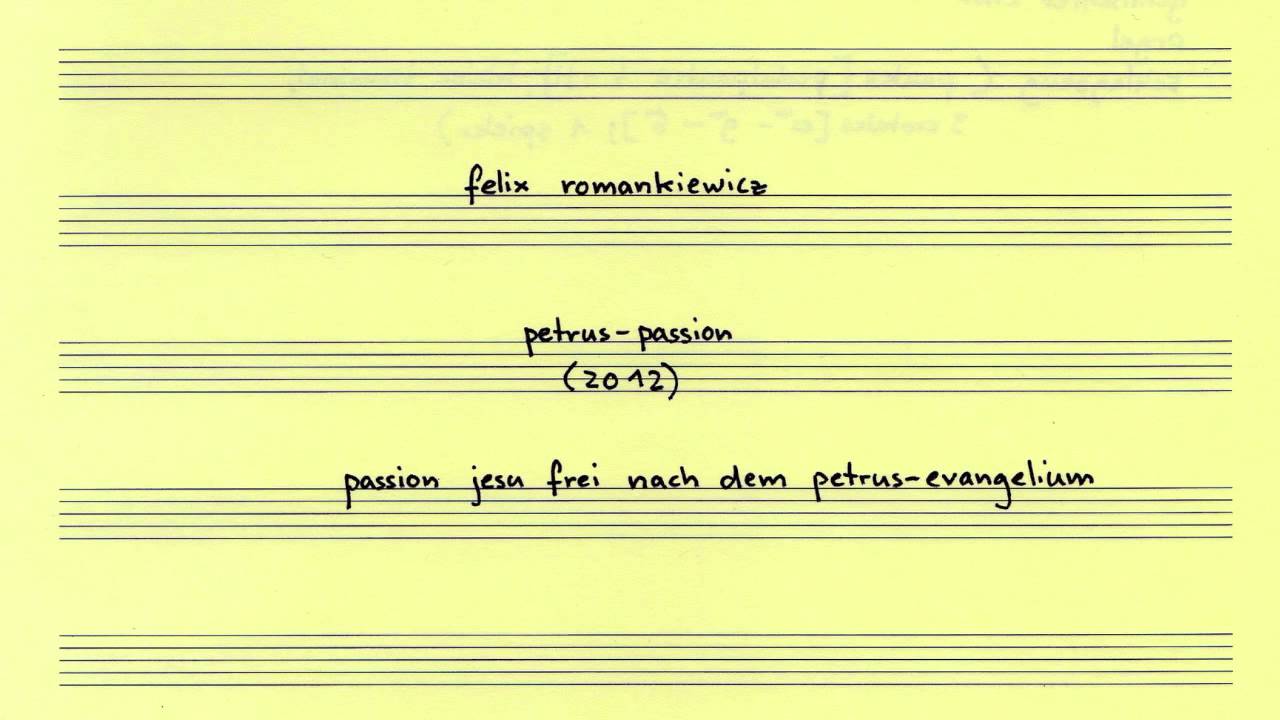 felix romankiewicz
petrus-passion
(2012)
passion jesu frei nach dem petrus-evangelium